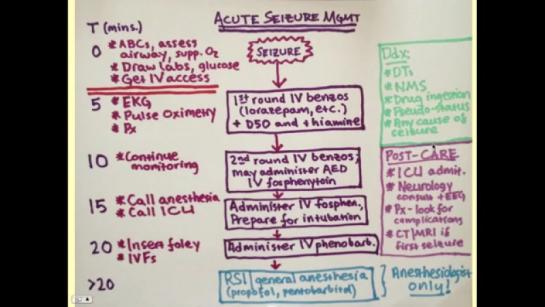 ACUTE SEIZURE MGMT
T (mins.)
0 *ABCs, assess
airway, supp. O2
*Draw labs, glucose
*Get IV access
5 *EKG
*Pulse Oximetry
*Px
10 *Continue
monitoring
15 *Call anesthesia
*Call ICU
20 *Insert foley
*IVFs
>20
SEIZURE
1st round IV benzos
(lorazepam, etc.)
+ D50 and thiamine
2nd round IV benzos;
may administer AED
IV fosphenytoin
Administer IV fosphen.,
Prepare for intubation
Administer IV phenobarb.
RSI general anesthesia
(propofol, pentobarbitol)
Anesthesiologist
only!
Ddx:
*DTs
*NMS
*Drug ingestion
*Pseudo-status
*Any cause of
seizure
POST-CARE
*ICU admit.
*Neurology
consult + EEG
*Px - look for
complications
*CT/MRI if
first seizure